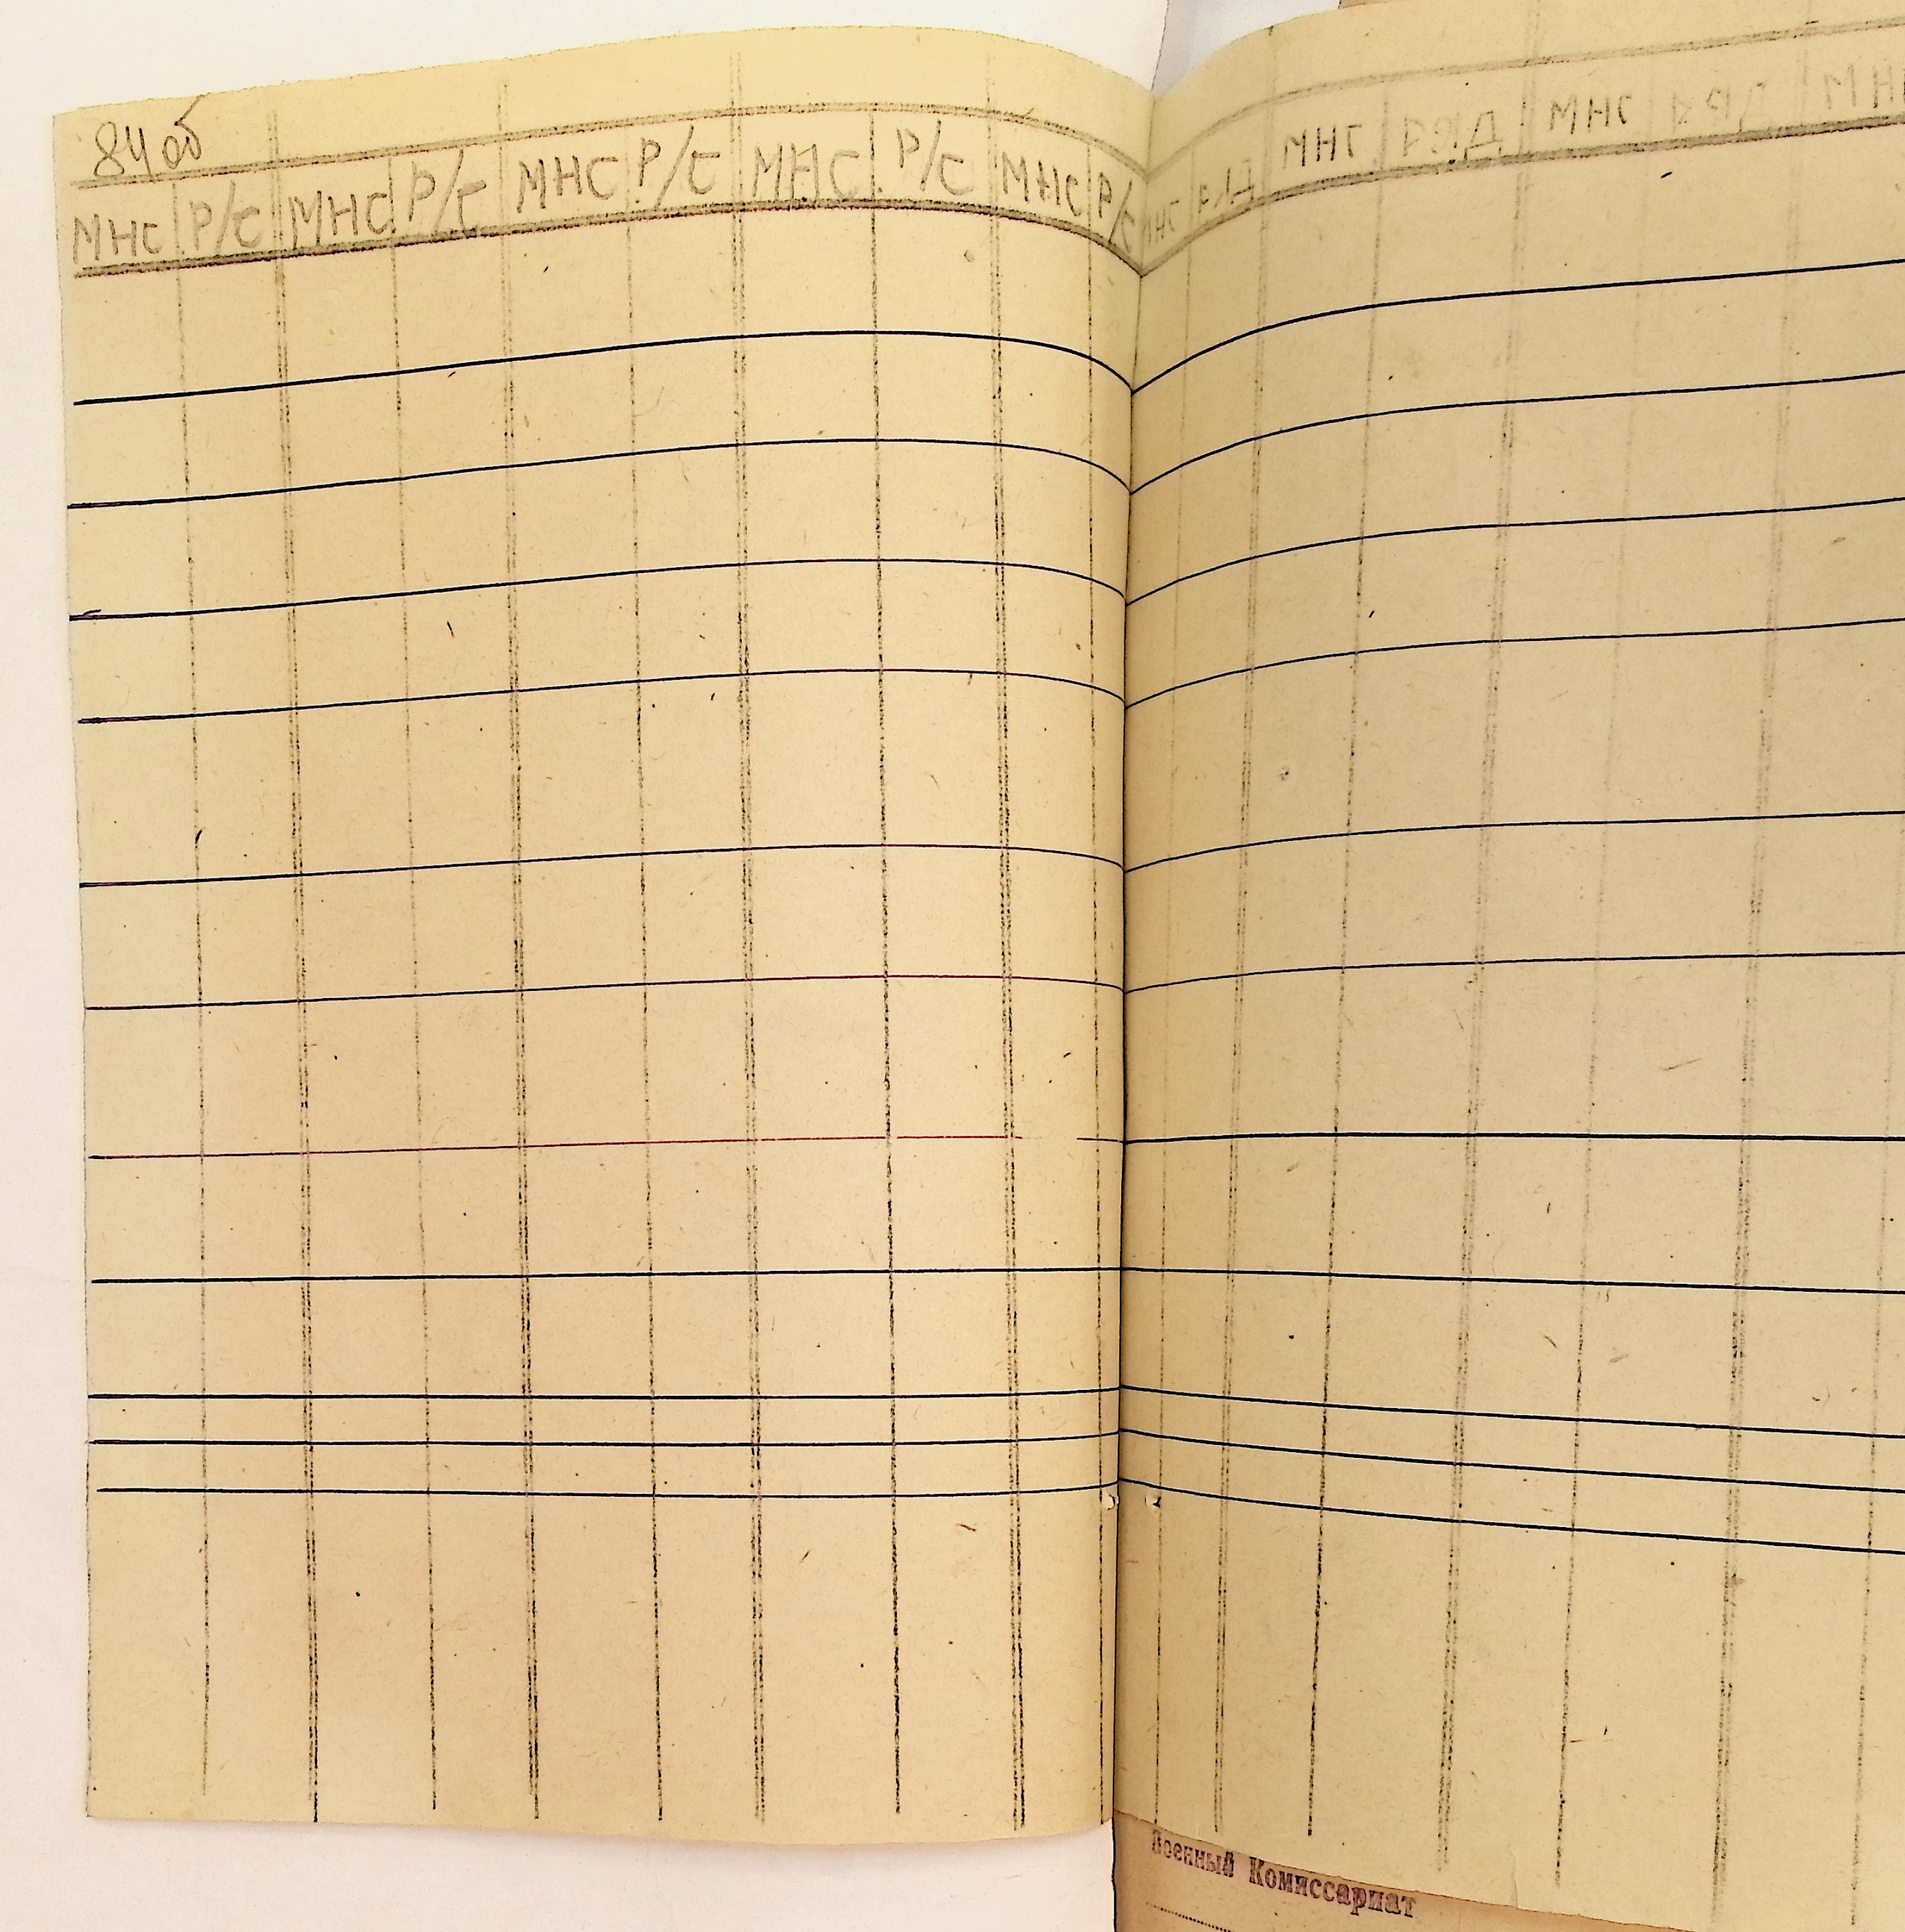 84 об
МНС Р/С МНС Р/С МНС Р/С МНС Р/С МНС Р/С
МНС МНС МНС
Военный Комиссариат